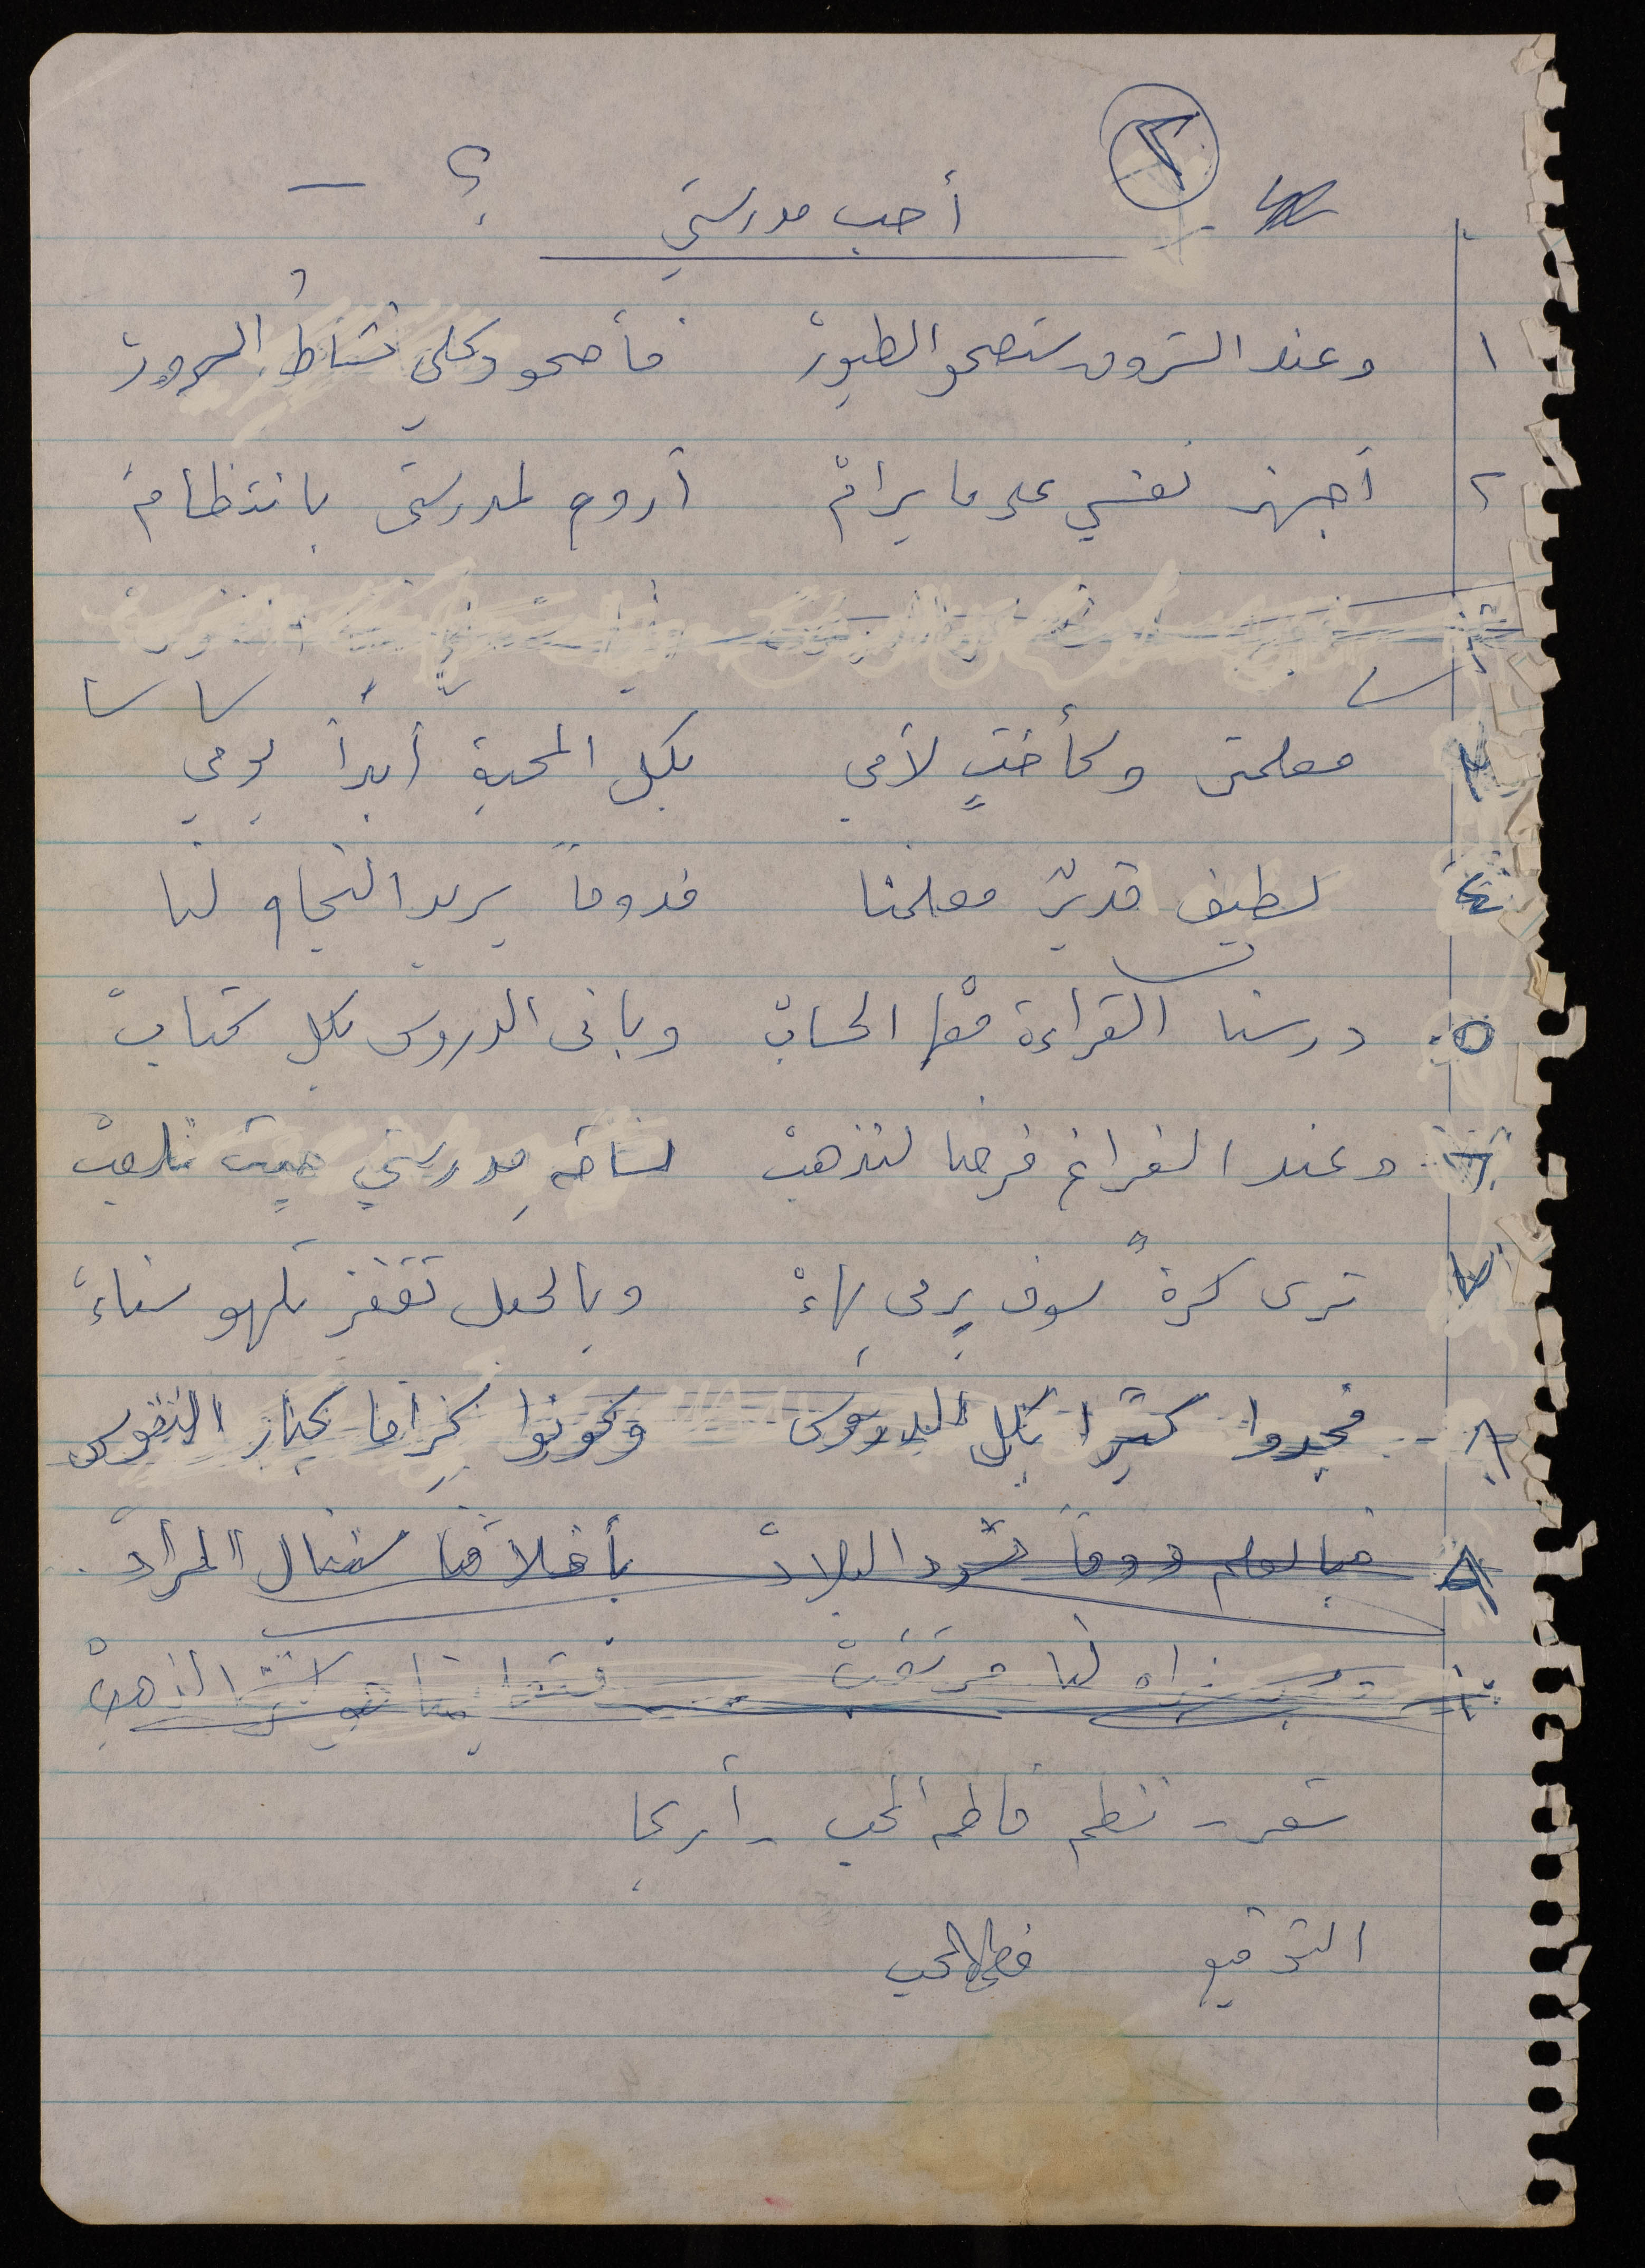 ٢
أحب مدرستي ؟ -
١ وعند الشروق ستصحو الطيورْ فأصحو وكلي نشاطُ السرورْ
٢ أجهز نفسي على ما يرامْ أروح لمدرستي بانتظامْ
٣ معلمتي وكأختٍ لأمي بكل المحبة أبدأ يومي
٤ لطيف قديرٌ معلمنا فدوماً يريد النجاح لنا
٥ درسنا القراءة معْها الحسابْ وباقي الدروس بكل كتابْ
٦ وعند الفراغ فرصنا لنذهبْ لساحة مدرستي حيث نلعبْ
٧ ترى كرةً سوف يرمى بهاءْ وبالحبل تقفز تلهو سناءْ
٨ - فجدوا كثيرا بكل الدروس وكونوا كراما كبار النفوس
٨ فبالعلم دوماً تسود البلادْ بأخلاقنا سننال المرادْ
لنا مرتقبْ الذهبْ
شعر - نظم فاطمة المحب - أريحا
التوقيع